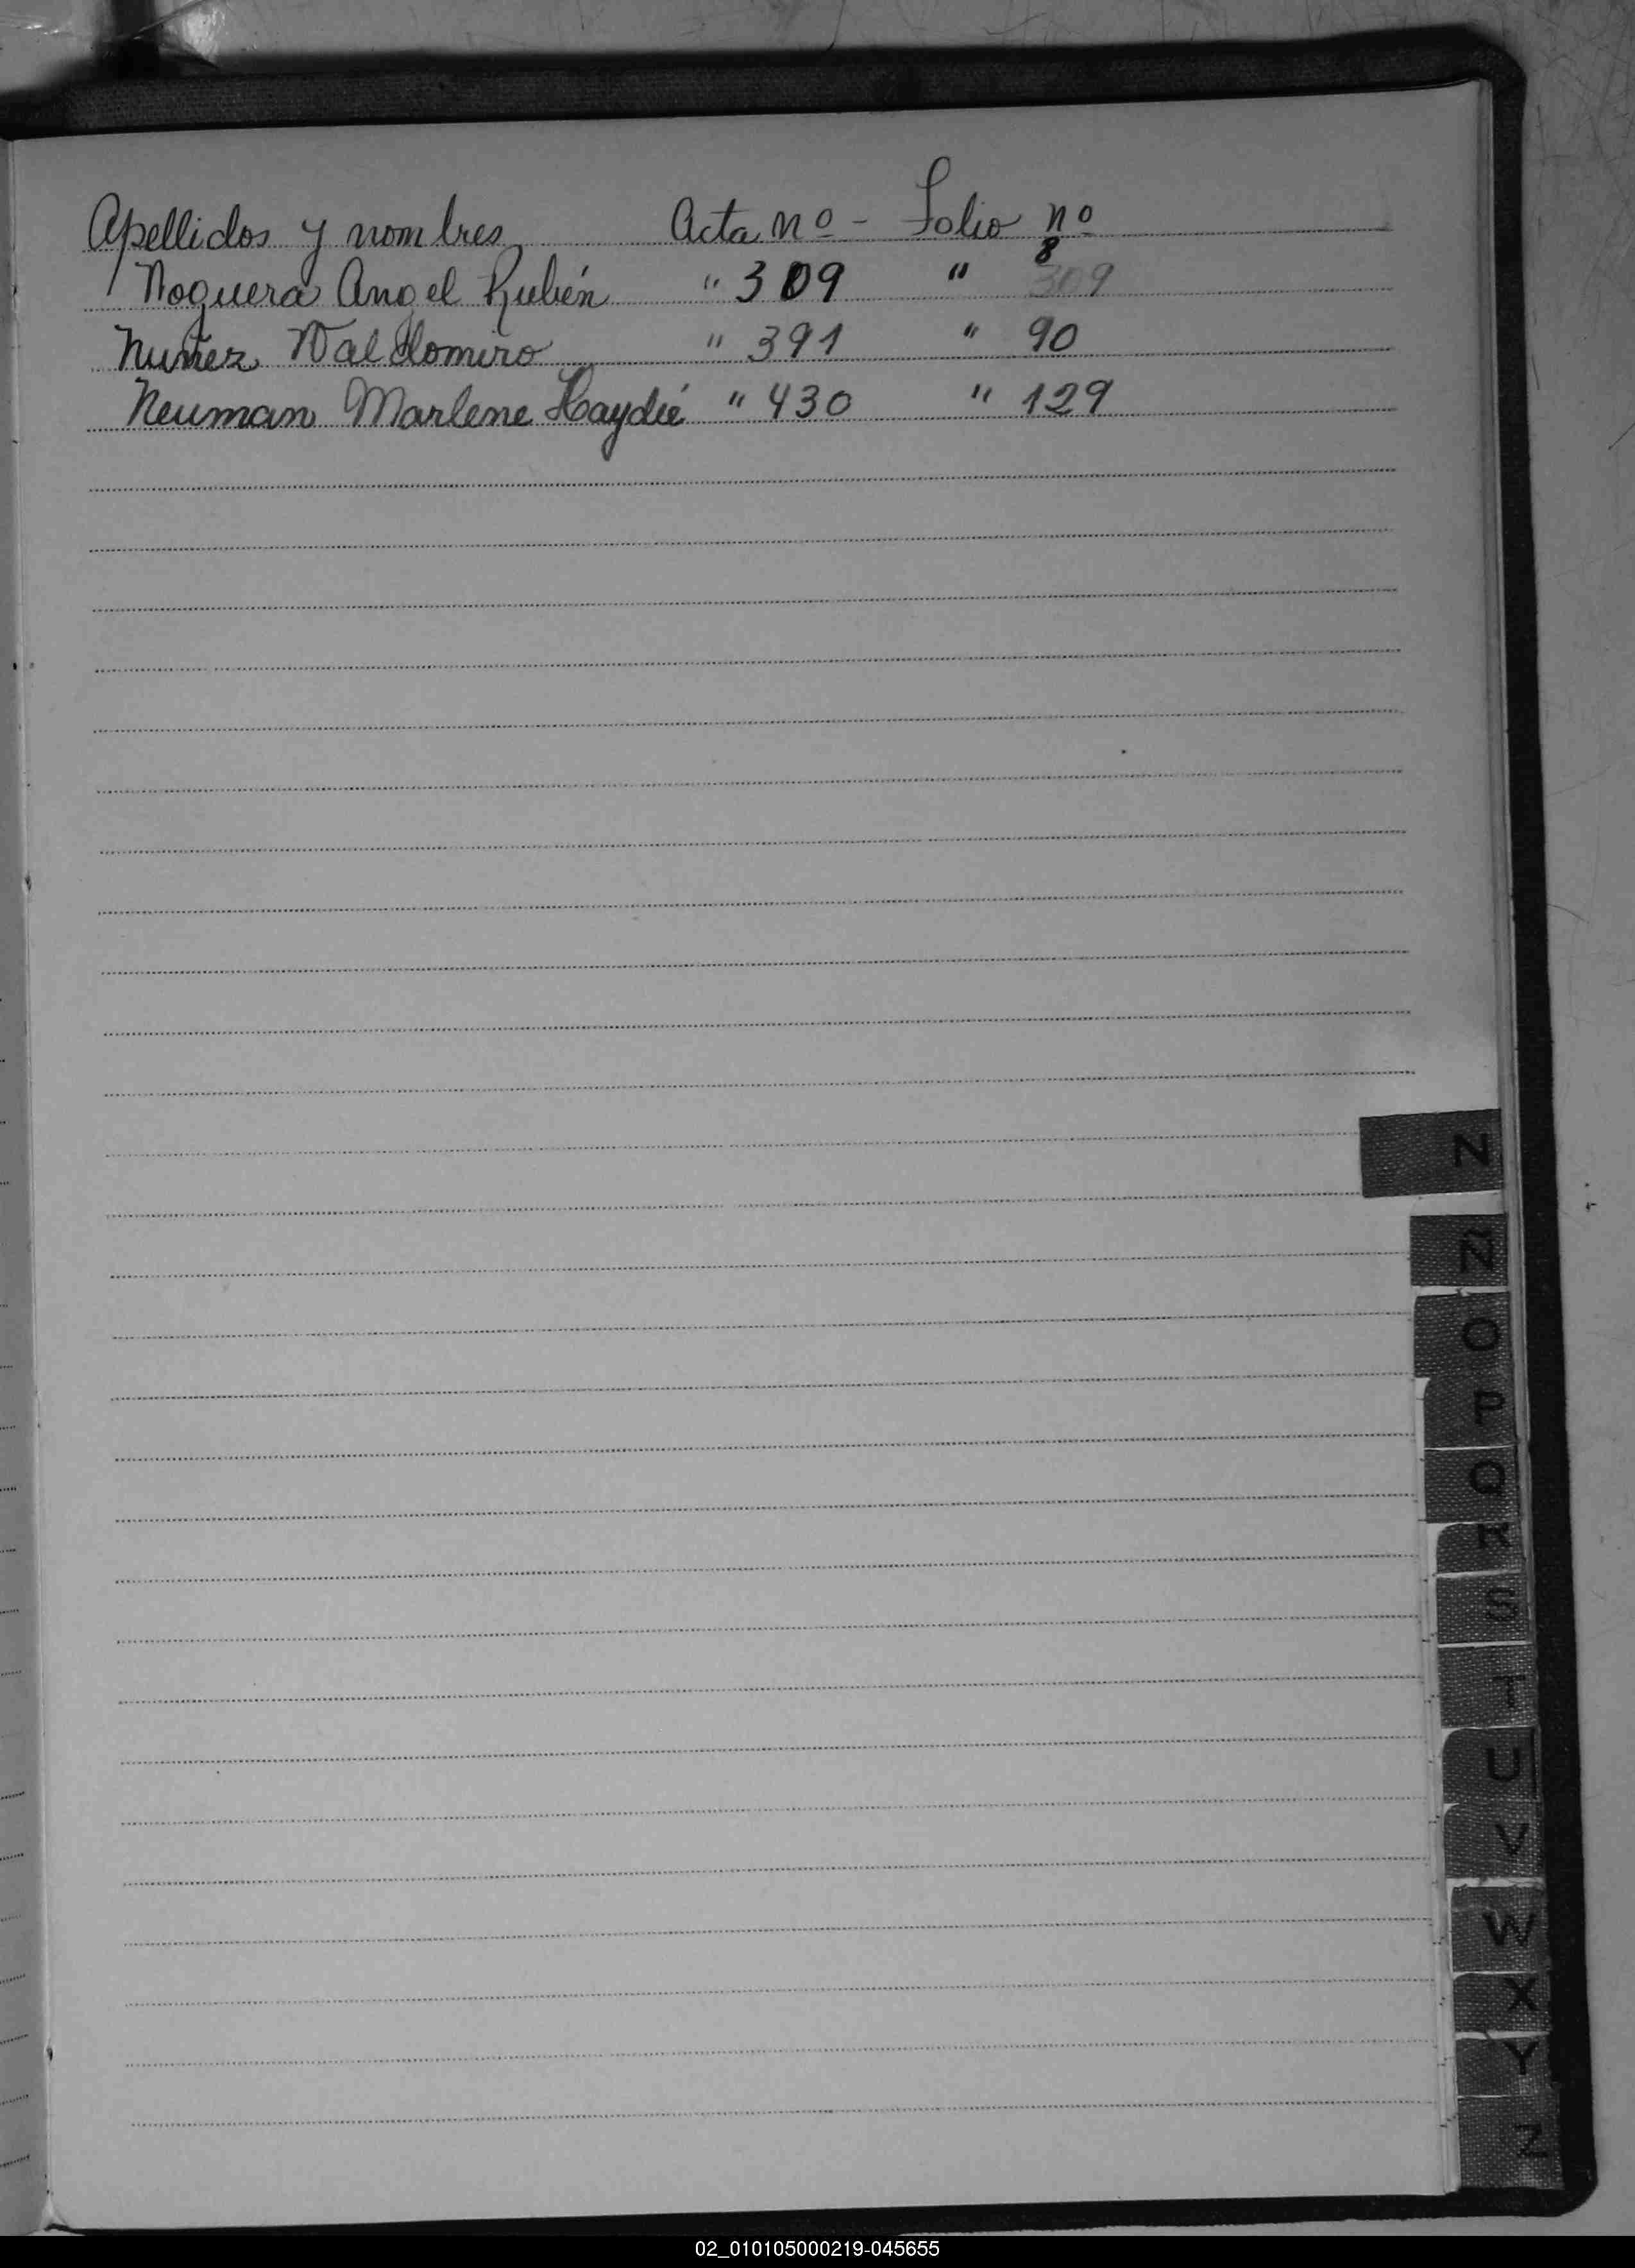 Apellidos y nombres Acta Nº - Folio nº
Noguera Angel Rubén " 309 " 8 309
Nuñez Waldomiro " 391 " 90
Neuman Marlene Haydée " 430 " 129
N
Ñ
O
P
Q
R
S
T
U
V
W
X
Y
Z
02_010105000219-045655